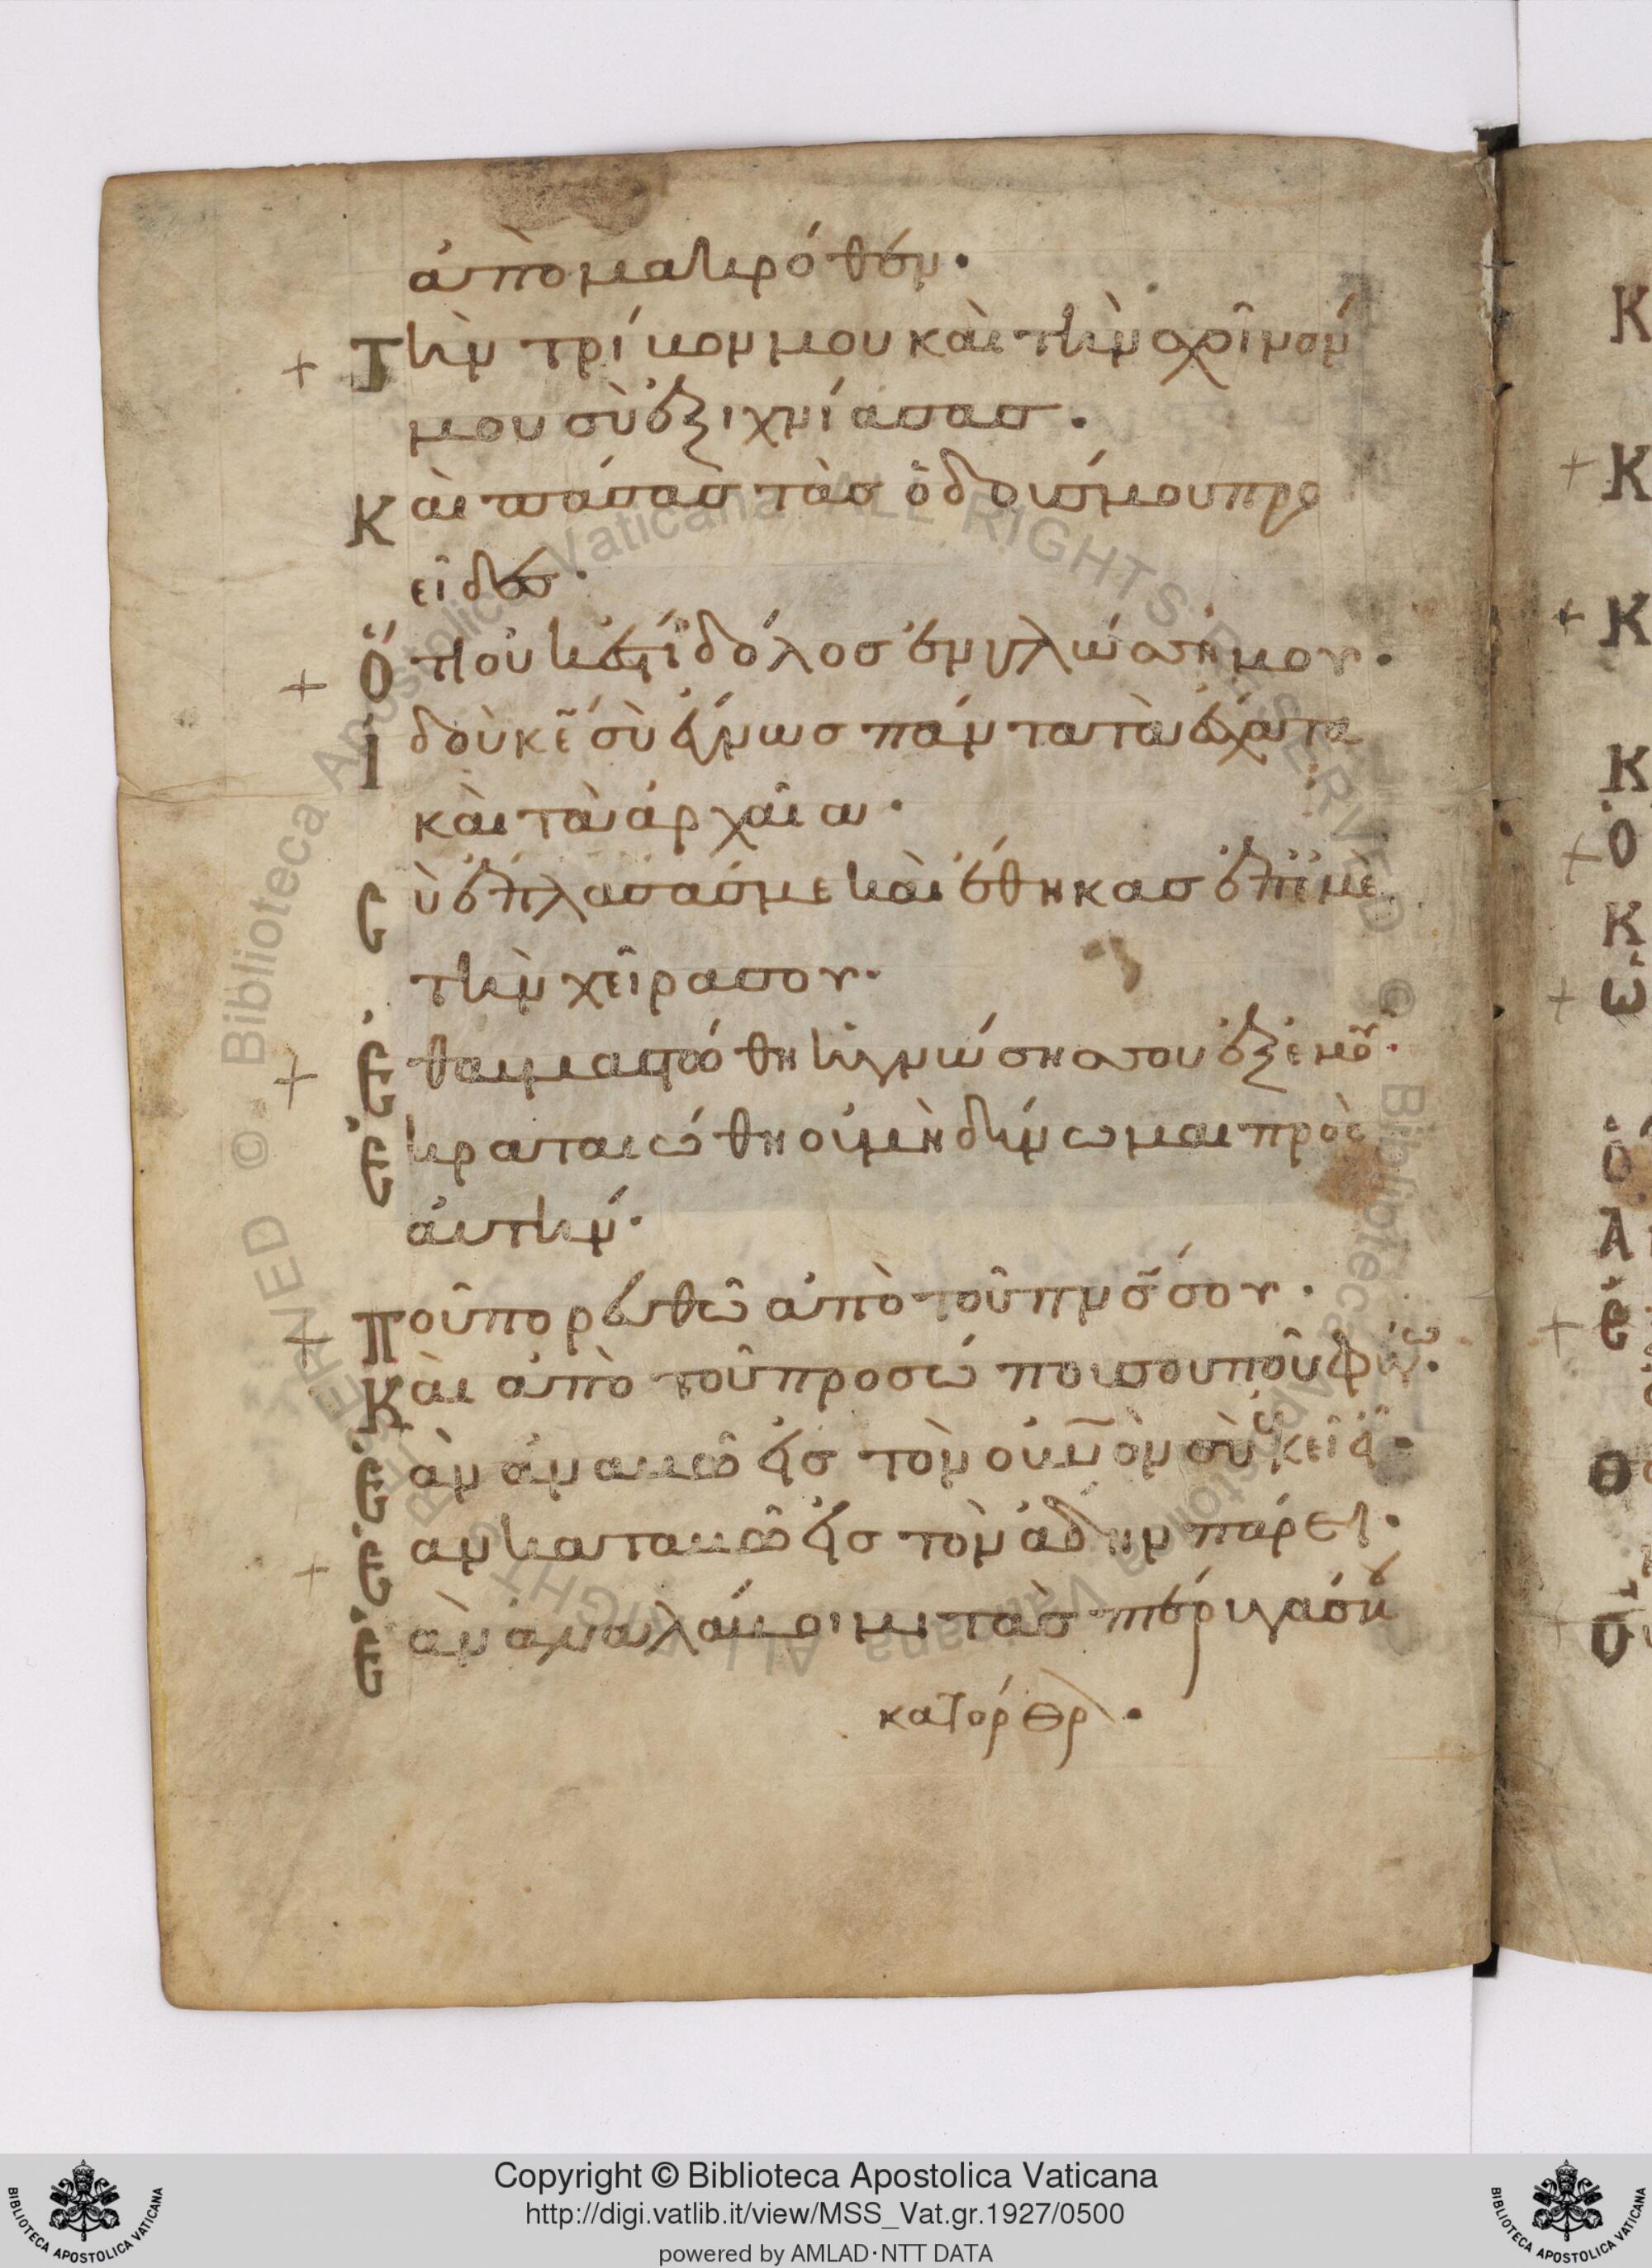 ἀπὸ μακρόθεν·
Τὴν τρίβον μου καὶ τὴν σχοῖνόν
μου σὺ ἐξιχνίασας·
Καὶ πάσας τὰς ὁδούς μου προ
εῖδες·
Ὅτι οὐκ ἔστι δόλος ἐν γλώσση μου·
Ἰδοὺ κε̃ σὺ ἔγνως πάντα τὰ ἔσχατα
καὶ τὰ ἀρχαῖα·
Σὺ ἔπλασάς με καὶ ἔθηκας ἐπ' ἐμὲ
τὴν χεῖρα σου·
Ἐθαυμαστώθη ἡ γνώσης σου ἐξ ἐμοῦ·
Ἐκραταιώθη οὐ μὴ δύνωμαι πρὸς
αὐτήν·
Ποῦ πορευθῶ ἀπὸ τοῦ πνς̃ σου·
Καὶ ἀπὸ τοῦ προσώπου σου ποῦ φύγω·
Ἐὰν ἀναβῶ εἰς τὸν οὐν̃ὸν σὺ ἐκεῖ εἶ·
Ἐὰν καταβῶ εἰς τὸν ἅδην πάρει·
Ἐὰν ἀναλάβοιμι τὰς πτέρυγάς μου
κατ' ὄρθρ·
Κ
Κ
Κ
Κ
Ὁ
Κ
Ἐ
Ὁ
Α
Ἐ
Θ
Copyright © Biblioteca Apostolica Vaticana
http://digi.vatlib.it/view/MSS_Vat.gr.1927/0500
powered by AMLAD·NTT DATA
BIBLIOTECA APOSTOLICA VATICANA
BIBLIOTECA APOSTOLICA VATICANA